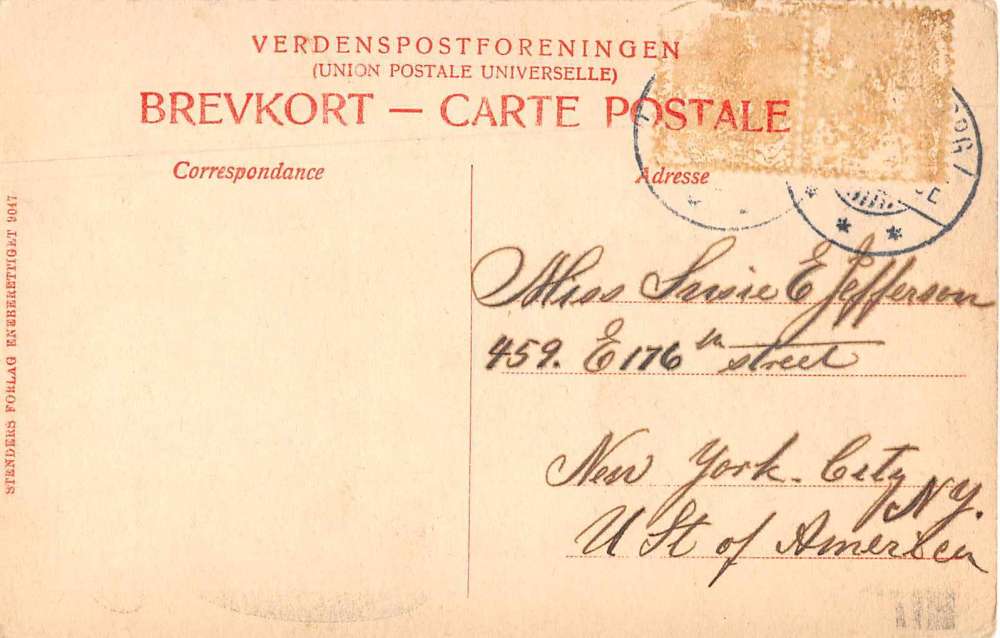 VERDENSPOSTFORENINGEN
(UNION POSTALE UNIVERSELLE)
BREVKORT — CARTE POSTALE
Correspondance
Adresse
STENDERS FORLAG ENEBERETTIGET 9047
Miss Susie E Jefferson
459. E 176th street
New York. City
NY.
U St of America